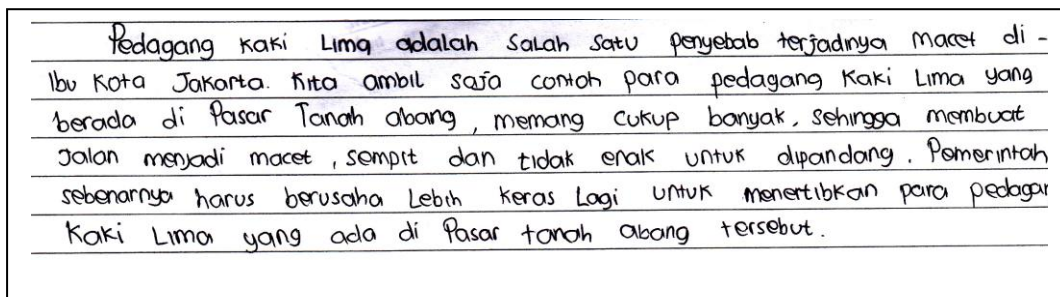 Pedagang Kaki Lima adalah salah satu penyebab terjadinya macet di -
Ibu Kota Jakarta. Kita ambil saja contoh para pedagang kaki Lima yang
berada di Pasar Tanah abang, memang cukup banyak, sehingga membuat
Jalan menjadi macet, sempit dan tidak enak untuk dipandang. Pemerintah
sebenarnya harus berusaha Lebih keras Lagi untuk menertibkan para pedagan
Kaki Lima yang ada di Pasar tanah abang tersebut.